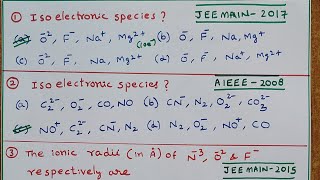 ① Iso electronic species? JEE MAIN-2017
(a) O²⁻, F⁻, Na⁺, Mg²⁺ (10e⁻) (b) O⁻, F⁻, Na, Mg⁺
(c) O²⁻, F⁻, Na, Mg²⁺ (d) O⁻, F⁻, Na⁺, Mg²⁺
② Iso electronic species? AIEEE-2008
(a) C₂²⁻, O₂⁻, CO, NO (b) CN⁻, N₂, O₂²⁻, C₂²⁻
(c) NO⁺, C₂²⁻, CN⁻, N₂ (d) N₂, O₂⁻, NO⁺, CO
③ The ionic radii (in Å) of N⁻³, O²⁻ & F⁻
respectively are JEE MAIN-2015